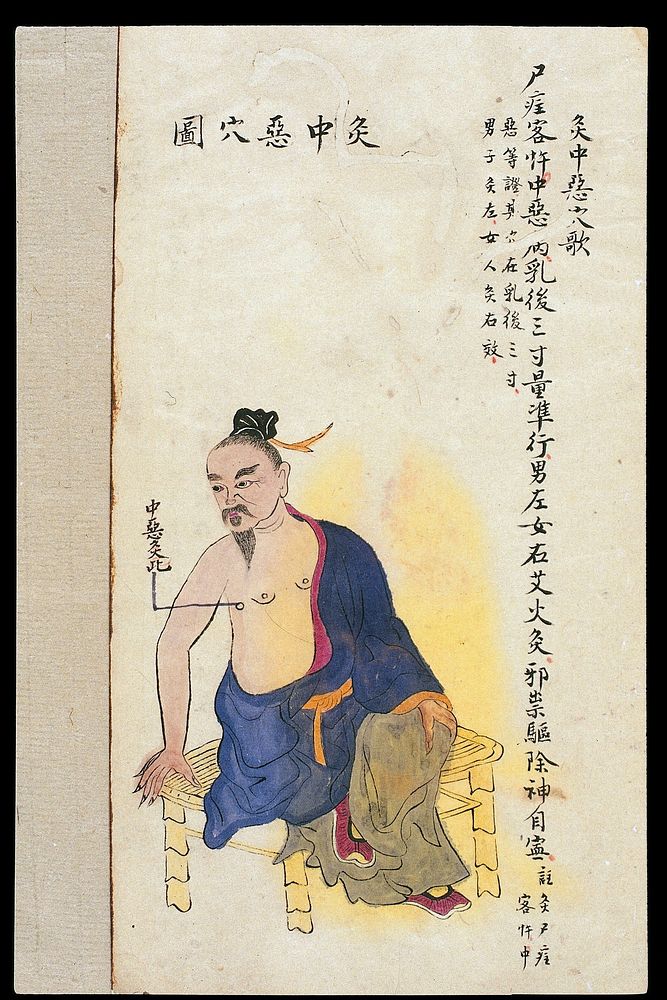 灸中惡穴圖
灸中惡穴歌
尸疰客忤中惡病乳後三寸量準行男左女右艾火灸邪祟驅除神自寧註灸尸疰客忤中
惡等證其穴在乳後三寸
男子灸左女人灸右效
中惡灸此